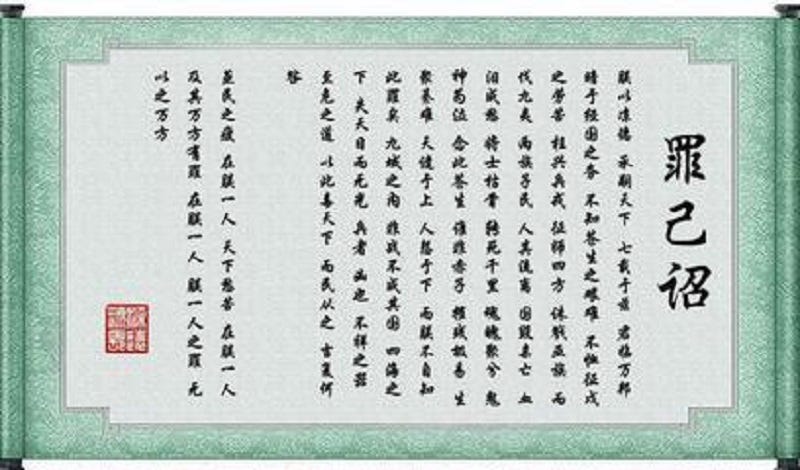 罪己诏
朕以凉德 承嗣天下 七载于兹 君临万邦
暗于经国之务 不知苍生之艰难 不恤征戍
之劳苦 枉兴兵戎 征师四方 诛戮巫族 而
伐九夷 两族子民 人其流离 国毁宗亡 血
泪成愁 将士枯骨 转死千里 魂魄聚兮 鬼
神为泣 念此苍生 谁非赤子 摧残极易 生
聚甚难 天谴于上 人怨于下 而朕不自知
此罪矣 九域之内 非战不成其国 四海之
下 失天日而无光 兵者 凶也 不祥之器
至危之道 以此毒天下 而民从之 吉复何
咎
民之疲 在朕一人 天下愁苦 在朕一人
及其万方有罪 在朕一人 朕一人之罪 无
以之万方